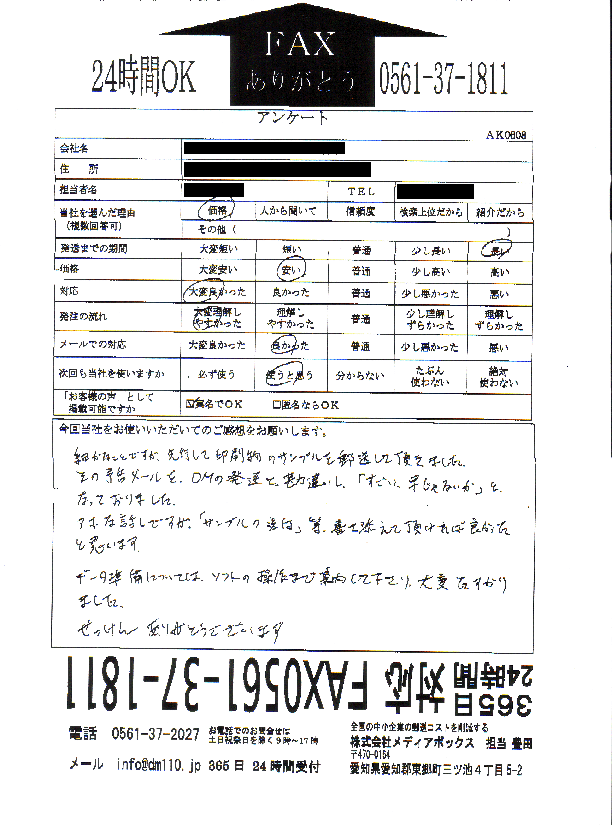 24時間OK
FAX
ありがとう
0561-37-1811
アンケート
AK0808
会社名
住 所
担当者名 TEL
当社を選んだ理由 価格 人から聞いて 信頼度 検索上位だから 紹介だから
(複数回答可) その他 ( )
発送までの期間 大変短い 短い 普通 少し長い 長い
価格 大変安い 安い 普通 少し高い 高い
対応 大変良かった 良かった 普通 少し悪かった 悪い
発注の流れ 大変理解しやすかった 理解しやすかった 普通 少し理解しずらかった 理解しずらかった
メールでの対応 大変良かった 良かった 普通 少し悪かった 悪い
次回も当社を使いますか 必ず使う 使うと思う 分からない たぶん使わない 絶対使わない
「お客様の声」として掲載可能ですか ☑実名でOK □匿名ならOK
今回当社をお使いいただいてのご感想をお願いします。
細かなことですが、先行して印刷物のサンプルを郵送して頂きました。
その予告メールを、DMの発送と勘違いし、「すごい、早いじゃないか」と
なっておりました。
アホな話しですが、「サンプルの送付」等、書き添えて頂ければ良かった
と思います
データ準備については、ソフトの操作まで案内して下さり、大変たすかり
ました。
ありがとうございます
365日24時間対応 FAX0561-37-1811
電話 0561-37-2027 お電話でのお問合せは土日祝祭日を除く9時~17時
メール info@dm110.jp 365日24時間受付
全国の中小企業の郵送コストを削減する
株式会社メディアボックス 担当 豊田
〒470-0154
愛知県愛知郡東郷町三ツ池4丁目5-2